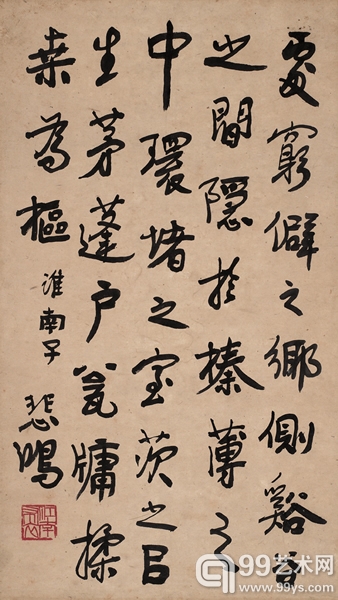 處窮僻之鄉側谿谷
之間隱於榛薄之
中環堵之室茨之㠯
生茅蓬戶瓮牖揉
桒為樞 淮南子 悲鴻
99艺术网
www.99ys.com